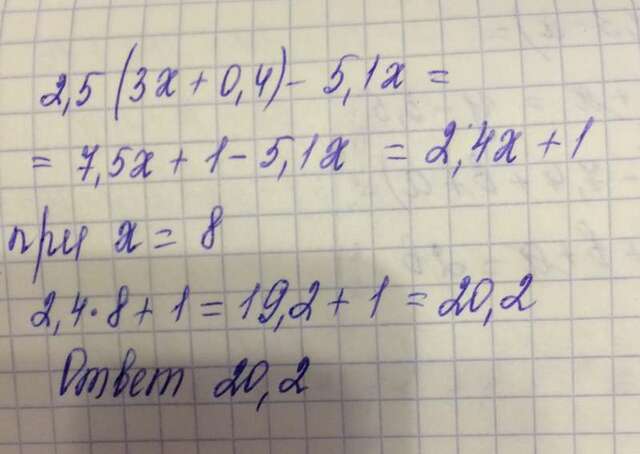 2,5(3x+0,4)-5,1x=
=7,5x+1-5,1x=2,4x+1
при x=8
2,4·8+1=19,2+1=20,2
Ответ 20,2